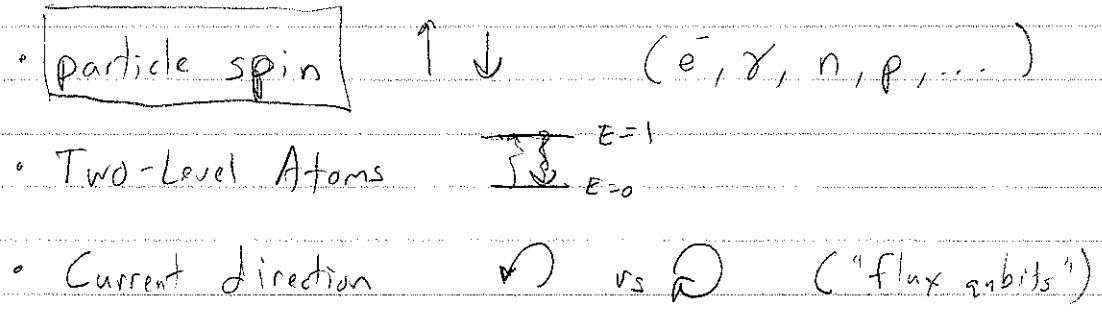 • particle spin ↑ ↓ (e⁻, γ, n, p, ....)
• Two-Level Atoms E=1
E=0
• Current direction ↶ vs ↷ ("flux qubits")